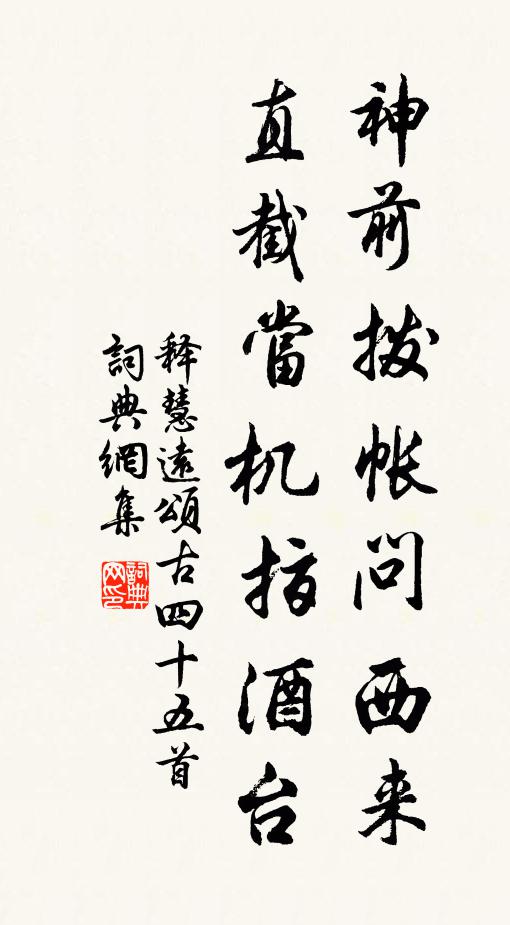 神前拨帐问西来
直截當机指酒台
释慧遠頌古四十五首
詞典網集
詞典网印